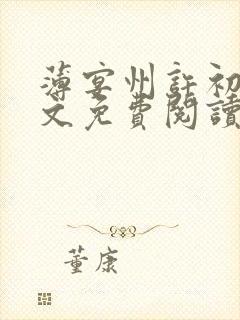 薄宴州許初
文免費閱讀
董康